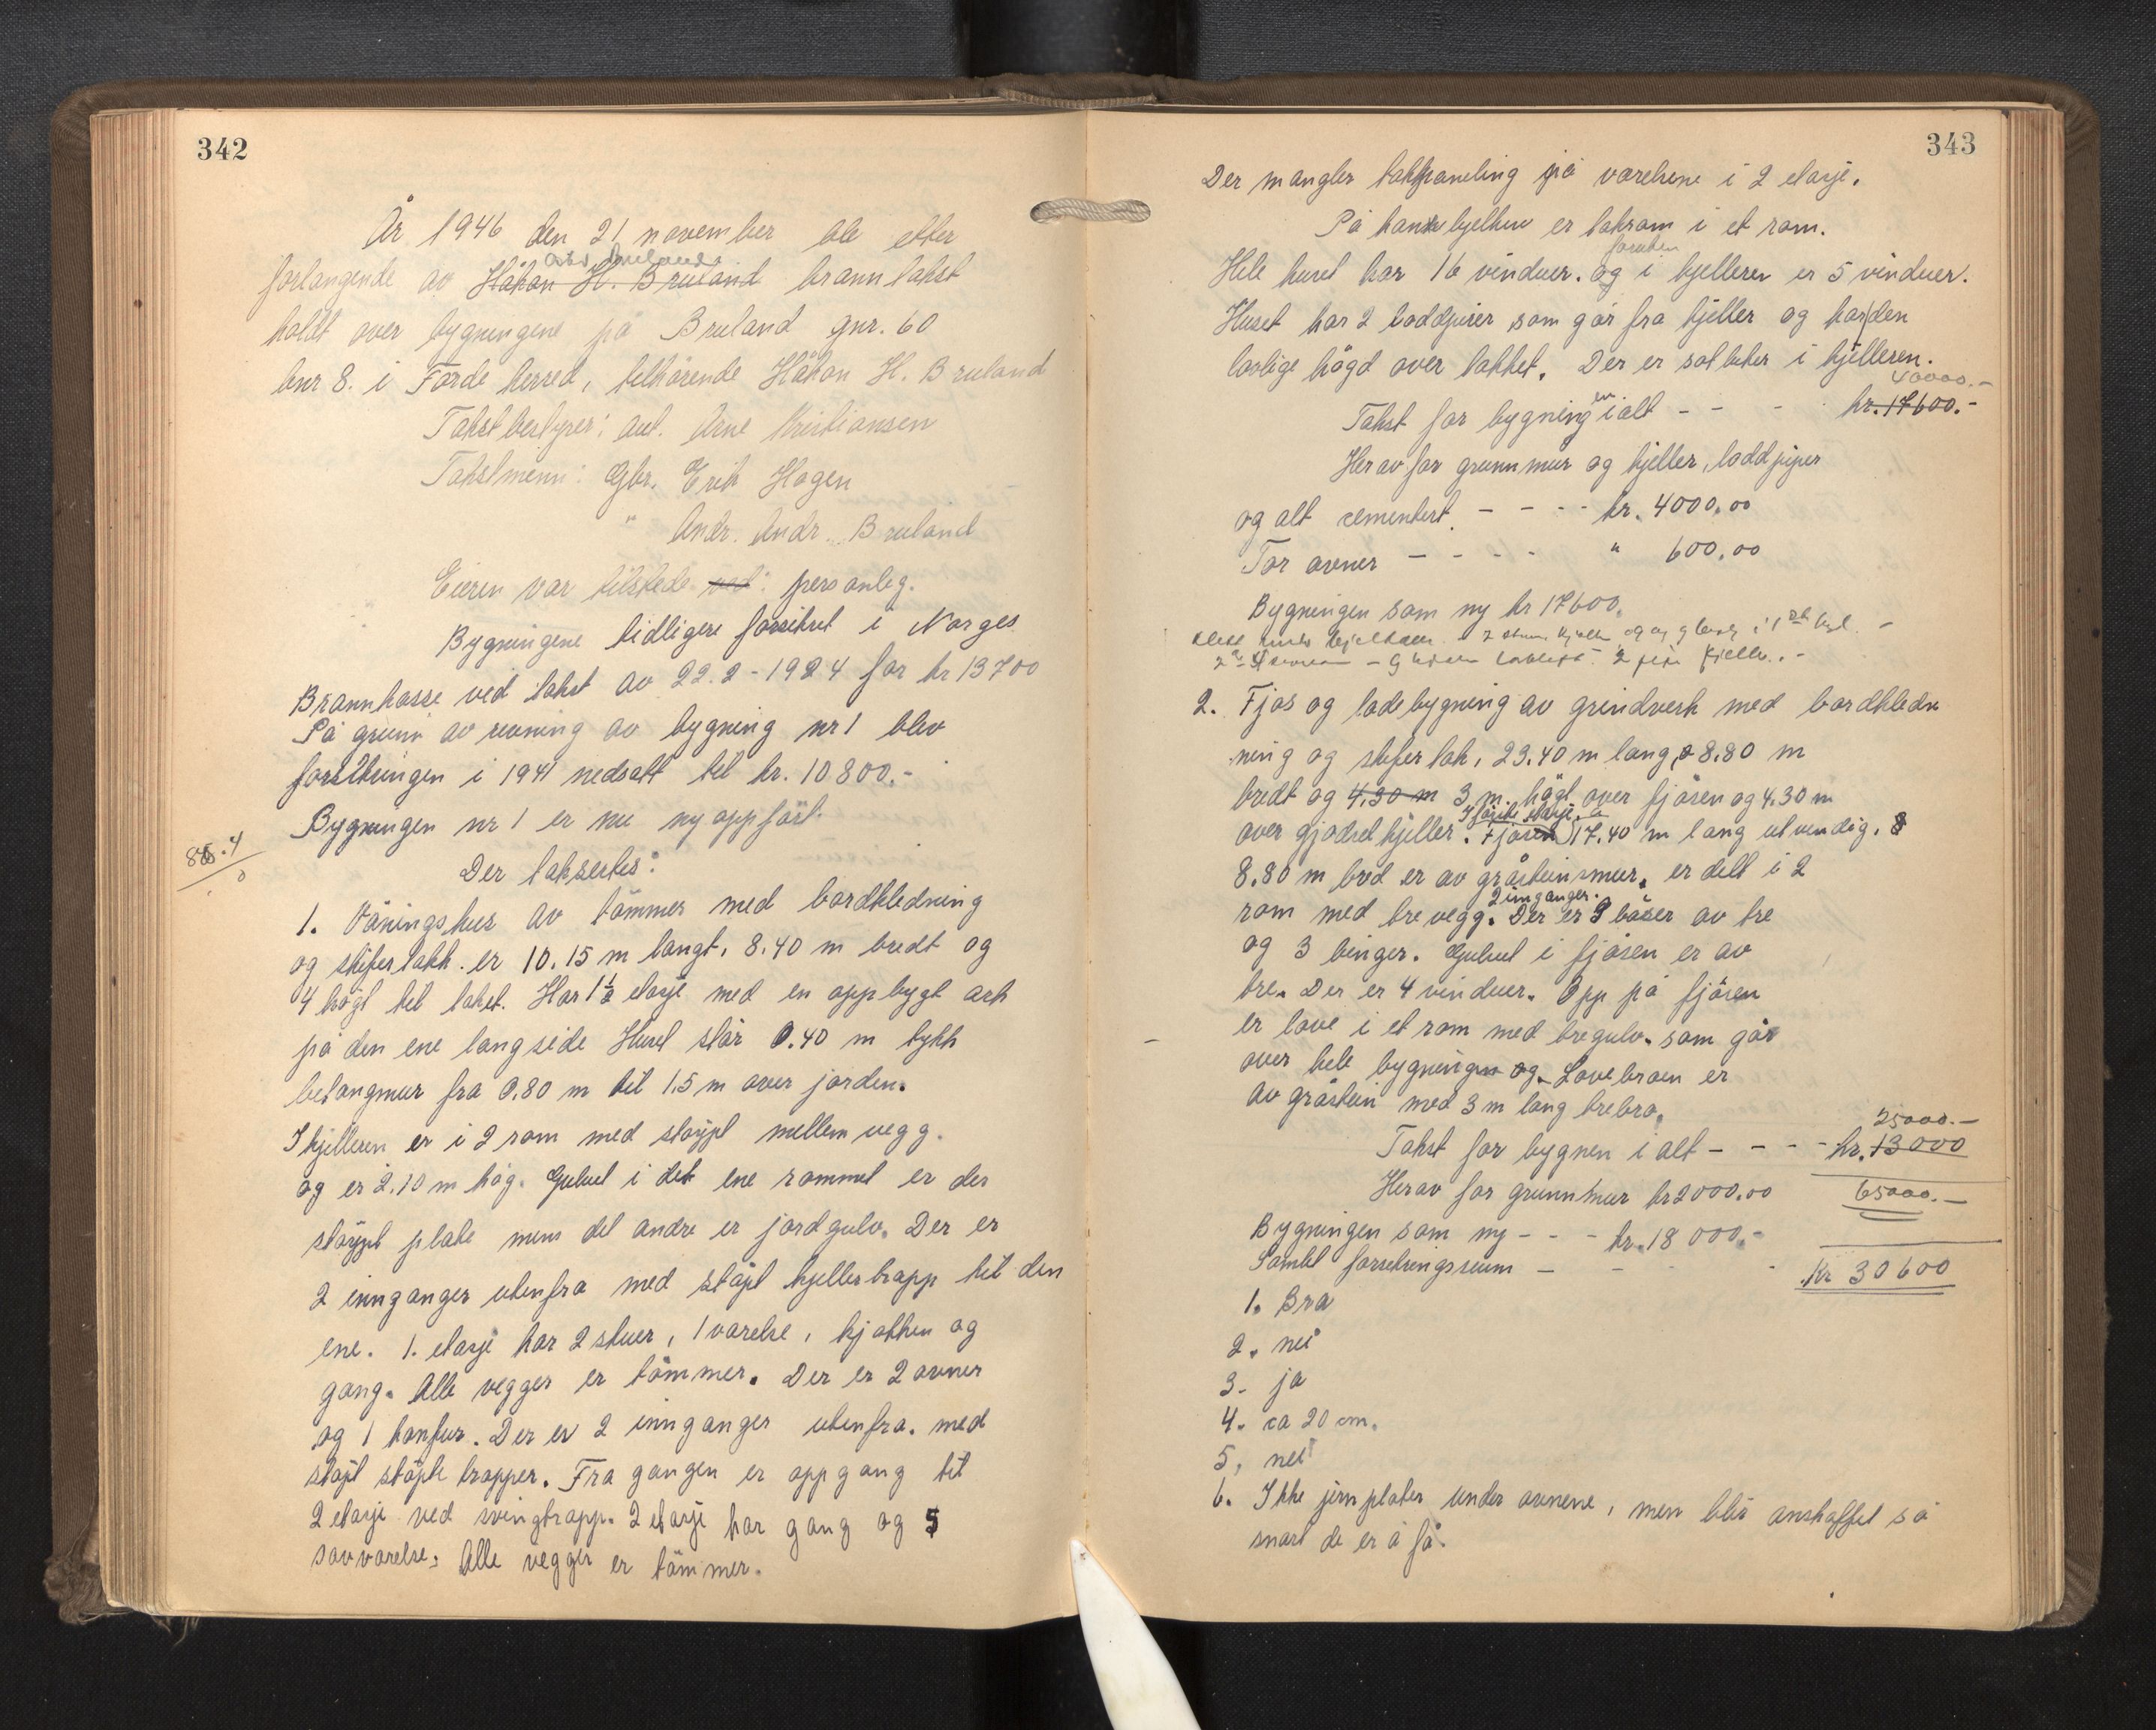 342
År 1946 den 21 november ble etter
Bruland
forlangende av Håkon H. Bruland branntakst
holdt over bygningene på Bruland gnr. 60
bnr 8. i Førde herred, tilhørende Håkon H. Bruland
Takstbestyrer: aut. Arne Kristiansen
Takstmenn: Gbr. Erik Hagen
" Andr. Andr. Bruland
Eieren var tilstede ved: personleg.
Bygningene tidligere forsikret i Norges
Brannkasse ved takst av 22.2-1924 for kr 13700
På grunn av rivning av bygning nr 1 blev
forsikringen i 1941 nedsatt til kr. 10800.-
Bygningen nr 1 er nu ny oppført.
Der takseres:
1. Våningshus av tømmer med bordkledning
og skifertakk. er 10.15 m langt, 8.40 m bredt og
4 högt til taket. Har 1½ etasje med en oppbygt ark
på den ene langside Huset står 0.40 m tykk
betongmur fra 0.80 m til 1.5 m over jorden.
I kjelleren er i 2 rom med støypt mellemvegg.
og er 2.10 m høg. Gulvet i det ene rommet er der
støypt plate mens det andre er jordgulv. Der er
2 innganger utenfra med støpt kjellertrapp til den
ene. 1. etasje har 2 stuer, 1 værelse, kjøkken og
gang. Alle vegger er tömmer. Der er 2 ovner
og 1 komfur. Der er 2 innganger utenfra. med
støpt støpte trapper. Fra gangen er oppgang til
2 etasje ved svingtrapp. 2 etasje har gang og 5
soveværelse. Alle vegger er tömmer.
343
Der mangler takpaneling på værelsene i 2 etasje.
På hanebjelken er takrom i et rom.
foruten
Hele huset har 16 vinduer. og i kjelleren er 5 vinduer.
Huset har 2 loddpiper som går fra kjeller og har den
lovlige högd over takket. Der er sotluker i kjelleren.
40000.-
Takst for bygningen ialt - - - kr. 17600.-
Herav for grunnmur og kjeller, loddpiper
og alt cementert. - - - - kr. 4000.00
For ovner - - - - " 600.00
Bygningen som ny kr 17600.
2. Fjøs og ladebygning av grindverk med bordkled
ning og skifertak, 23.40 m lang, 8.80 m
bredt og 4.30 m 3 m. högt over fjösen og 4.30 m
I første etasje
over gjødselkjeller. Fjøsen 17.40 m lang utvendig. 8
8.80 m bred er av gråsteinsmur. er delt i 2
2 innganger.
rom med trevegg. Der er 9 båser av tre
og 3 binger. Gulvet i fjösen er av
tre. Der er 4 vinduer. Opp på fjösen
er love i et rom med tregulv. som går
over hele bygningen og. Lovebroen er
av gråstein med 3 m lang trebro.
25000.-
Takst for bygnen i alt - - - kr. 13000
Herav for grunnmur kr 2000.00
65000.-
Bygningen som ny - - - kr. 18000.-
Samlet forsekringssum - - - Kr 30600
1. Bra
2. nei
3. ja
4. ca 20 cm.
5. nei
6. Ikke jernplater under ovnene, men blir anskaffet så
snart de er å få.